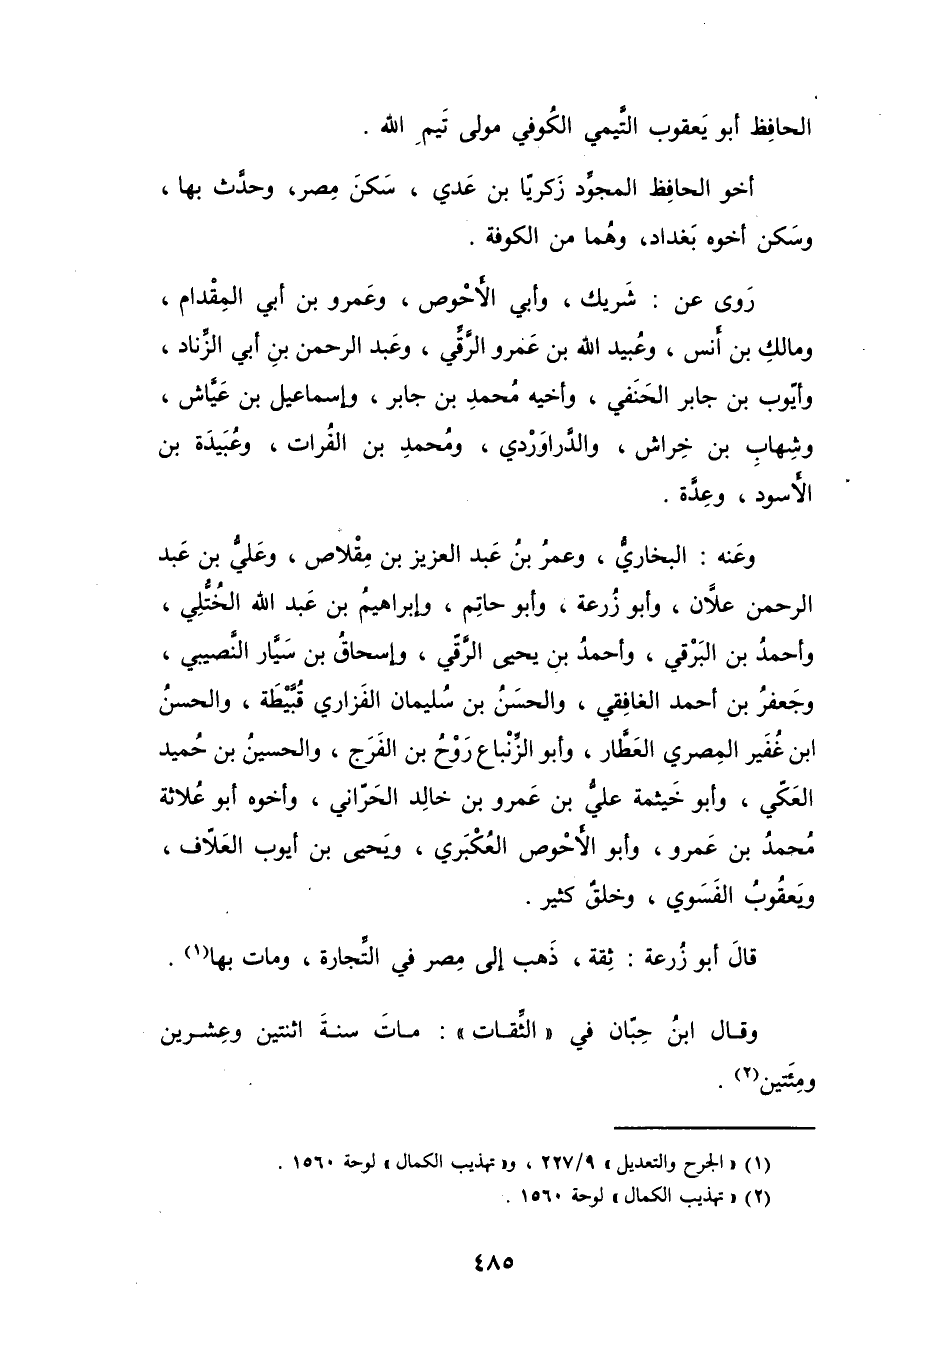 الحافِظ أبو يَعقوب التَّيمي الكُوفي مولى تَيمِ الله .
أخو الحافِظ المجوِّد زَكريّا بن عَدي ، سَكنَ مِصر، وحدَّث بها ،
وسَكن أخوه بَغداد، وهُما من الكوفة .
رَوى عن : شَريك ، وأبي الأَحْوص ، وعَمرو بن أبي المِقْدام ،
ومالكِ بن أَنس ، وعُبيد الله بن عَمرو الرَّقِّي ، وعَبد الرحمن بنِ أبي الزِّناد ،
وأيّوب بن جابر الحَنَفي ، وأخيه مُحمدِ بن جابر ، وإسماعيل بن عَيَّاش ،
وشِهابِ بن خِراش ، والدَّراوَرْدي ، ومُحمدِ بن الفُرات ، وعُبَيدَة بن
الأَسود ، وعِدَّة .
وعَنه : البخاريُّ ، وعمرُ بنُ عَبد العزيز بن مِقْلاص ، وعَليُّ بن عَبد
الرحمن علَّان ، وأبو زُرعة ، وأبو حاتِم ، وإبراهيمُ بن عَبد الله الخُتُّلِي ،
وأحمدُ بن البَرْقي ، وأحمدُ بن يحيى الرَّقّي ، وإسحاقُ بن سَيَّار النَّصيبي ،
وجَعفرُ بن أحمد الغافِقي ، والحسَنُ بن سُليمان الفَزاري قُبَّيْطَة ، والحسنُ
ابن غُفَير المِصري العَطَّار ، وأبو الزِّنْباع رَوْحُ بن الفَرَج ، والحسينُ بن حُميد
العَكّي ، وأبو خَيثمة عليُّ بن عَمرو بن خالِد الحَرّاني ، وأخوه أبو عُلاثة
مُحمدُ بن عَمرو ، وأبو الأَحْوص العُكْبَري ، ويَحيى بن أيوب العَلّاف ،
ويَعقُوبُ الفَسَوي ، وخلقٌ كثير .
قالَ أبو زُرعة : ثِقة ، ذَهب إلى مِصر في التِّجارة ، ومات بها(١) .
وقـال ابنُ حِبّان في « الثِّقـات » : مـاتَ سنـةَ اثنتين وعِشـرين
ومِئَتين(٢) .
(١) « الجرح والتعديل » ٢٢٧/٩ ، و« تهذيب الكمال » لوحة ١٥٦٠ .
(٢) « تهذيب الكمال » لوحة ١٥٦٠ .
٤٨٥